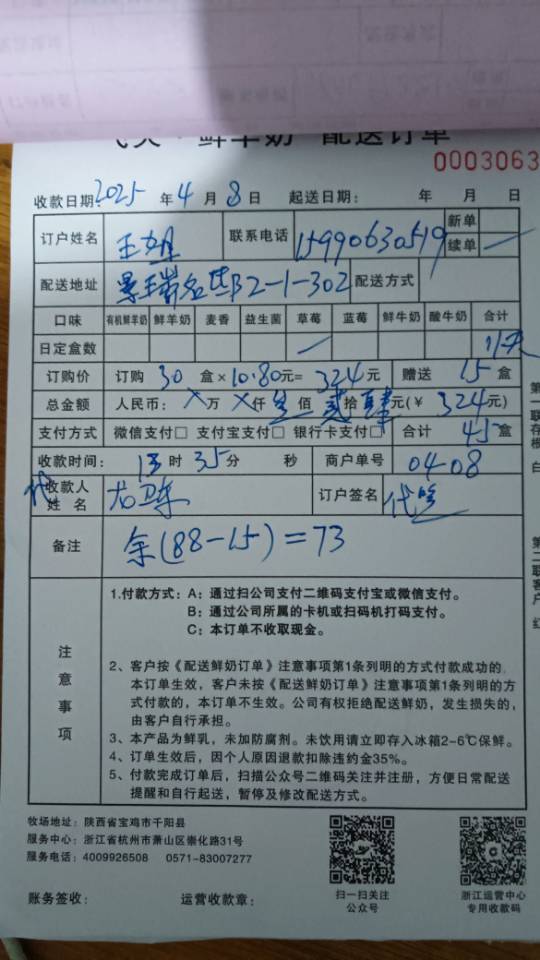 鲜羊奶 配送订单
0003063
收款日期: 2025 年 4 月 8 日 起送日期: 年 月 日
订户姓名 王 联系电话 15990630519 新单
续单
配送地址 景瑞名邸32-1-302 配送方式
口味 有机鲜羊奶 鲜羊奶 麦香 益生菌 草莓 蓝莓 鲜牛奶 酸牛奶 合计
日定盒数 1/天
订购价 订购 30 盒×10.80元= 324 元 赠送 15 盒
总金额 人民币: ×万 ×仟 叁 佰 贰 拾 肆 元(¥ 324 元)
支付方式 微信支付□ 支付宝支付□ 银行卡支付□ 合计 45 盒
收款时间: 13 时 35 分 秒 商户单号 04-08
代收款人
姓 名 订户签名 代签
备注 余(88-15)=73
注意事项
1.付款方式: A: 通过扫公司支付二维码支付宝或微信支付。
B: 通过公司所属的卡机或扫码机打码支付。
C: 本订单不收取现金。
2、客户按《配送鲜奶订单》注意事项第1条列明的方式付款成功的,
本订单生效, 客户未按《配送鲜奶订单》注意事项第1条列明的方
式付款的, 本订单不生效。公司有权拒绝配送鲜奶, 发生损失的,
由客户自行承担。
3、本产品为鲜乳, 未加防腐剂。未饮用请立即存入冰箱2-6℃保鲜。
4、订单生效后, 因个人原因退款扣除违约金35%。
5、付款完成订单后, 扫描公众号二维码关注并注册, 方便日常配送
提醒和自行起送, 暂停及修改配送方式。
牧场地址: 陕西省宝鸡市千阳县
服务中心: 浙江省杭州市萧山区崇化路31号
服务电话: 4009926508 0571-83007277
扫一扫关注
公众号
浙江运营中心
专用收款码
账务签收: 运营收款章:
第一联存根
白
第二联客户
红